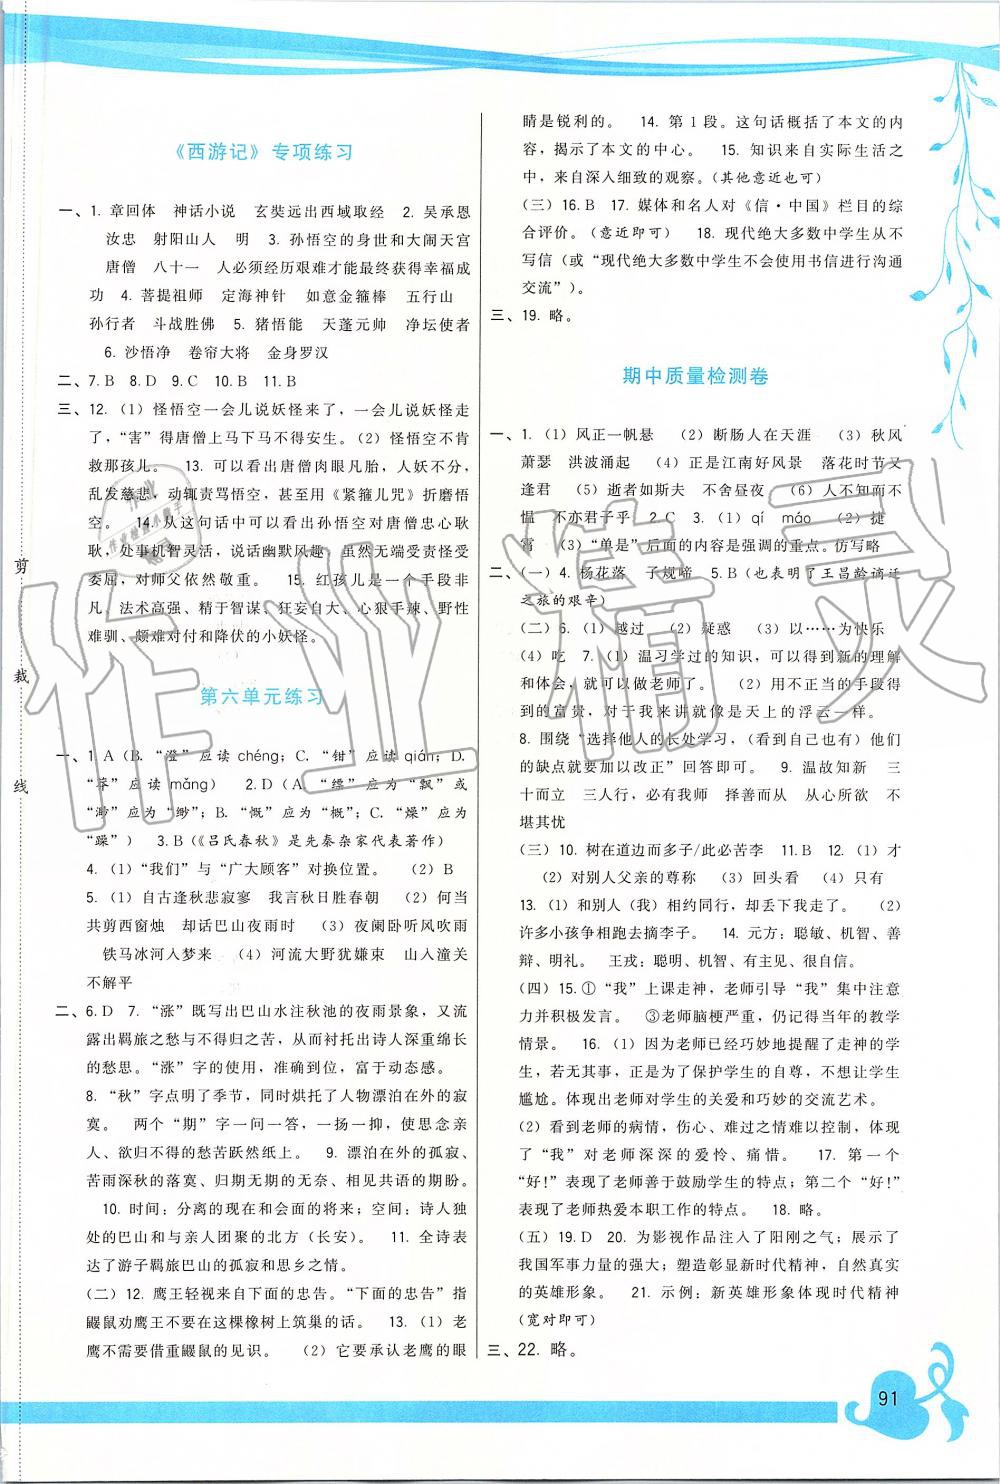 《西游记》专项练习
一、1. 章回体　神话小说　玄奘远出西域取经　2. 吴承恩
汝忠　射阳山人　明　3. 孙悟空的身世和大闹天宫
唐僧　八十一　人必须经历艰难才能最终获得幸福成
功　4. 菩提祖师　定海神针　如意金箍棒　五行山
孙行者　斗战胜佛　5. 猪悟能　天蓬元帅　净坛使者
6. 沙悟净　卷帘大将　金身罗汉
二、7. B　8. D　9. C　10. B　11. B
三、12.（1）怪悟空一会儿说妖怪来了，一会儿说妖怪走
了，“害”得唐僧上马下马不得安生。（2）怪悟空不肯
救那孩儿。　13. 可以看出唐僧肉眼凡胎，人妖不分，
乱发慈悲，动辄责骂悟空，甚至使用《紧箍儿咒》折磨悟
空。　14. 从这句话中可以看出孙悟空对唐僧忠心耿
耿，处事机智灵活，说话幽默风趣。虽然无端受责受
委屈，对师父依然敬重。　15. 红孩儿是一个手段非
凡、法术高强、精于管理、狂妄自大、心狠手辣、野性
难驯、颇难对付和降伏的小妖怪。
第六单元练习
一、1. A（B. “澄”应读 chéng；C. “钳”应读 qián；D.
“莽”应读 mǎng）　2. D（A. “缥”应为“飘”或
“渺”应为“缈”；B. “慨”应为“概”；C. “燥”应为
“躁”）　3. B（《吕氏春秋》是先秦杂家代表著作）
4.（1）“我们”与“广大顾客”对换位置。　（2）B
5.（1）自古逢秋悲寂寥　我言秋日胜春朝　（2）何当
共剪西窗烛　却话巴山夜雨时　（3）夜阑卧听风吹雨
铁马冰河入梦来　（4）河流大野犹嫌束　山入潼关
不解平
二、6. D　7. “涨”既写出巴山水注秋池的夜雨景象，又流
露出羁旅之愁与不得归之苦，从而衬托出诗人深重绵长
的愁思。“涨”字的使用，准确到位，富于动态感。
8. “秋”字点明了季节，同时烘托了人物漂泊在外的寂
寞。　两个“期”字一问一答，一扬一抑，使思念亲
人、欲归不得的愁苦跃然纸上。　9. 漂泊在外的孤寂、
苦雨深秋的落寞、归期无期的无奈、相见共语的期盼。
10. 时间：分离的现在和会面的将来；空间：诗人独
处的巴山和与亲人团聚的北方（长安）。　11. 全诗表
达了游子羁旅巴山的孤寂和思乡之情。
（二）12. 鹰王轻视来自下面的忠告。“下面的忠告”指
鼹鼠劝鹰王不要在这棵橡树上筑巢的话。　13.（1）老
鹰不需要借重鼹鼠的见识。　（2）它要承认老鹰的眼
睛是锐利的。　14. 第 1 段。这句话概括了本文的内
容，揭示了本文的中心。　15. 知识来自实际生活之
中，来自深入细致的观察。（其他意近也可）
（三）16. B　17. 媒体和名人对《信·中国》栏目的综
合评价。（意近即可）　18. 现代绝大多数中学生从不
写信（或“现代绝大多数中学生不会使用书信进行沟通
交流”）。
三、19. 略。
期中质量检测卷
一、1.（1）风正一帆悬　（2）断肠人在天涯　（3）秋风
萧瑟　洪波涌起　（4）正是江南好风景　落花时节又
逢君　（5）逝者如斯夫　不舍昼夜　（6）人不知而不
愠　不亦君子乎　2. C　3.（1）qí　máo　（2）捷
霄　（3）“单是”后面的内容是强调的重点。仿写略
二、（一）4. 杨花落　子规啼　5. B（也表明了王昌龄谪迁
之旅的艰辛）
（二）6.（1）越过　（2）疑惑　（3）以……为快乐
（4）吃　7.（1）温习学过的知识，可以获得新的理解
和体会，就可以做老师了。（2）用不正当的手段得
到的富贵，对于我来讲就像是天上的浮云一样。
8. 围绕“选择他人的长处学习，（看到自己也有）他们
的缺点就要加以改正”回答即可。　9. 温故知新　三
十而立　三人行，必有我师　择善而从　从心所欲　不
堪其忧
（三）10. 树在道边而多子/此必苦李　11. B　12.（1）才
（2）对别人父亲的尊称　（3）回头看　（4）只有
13.（1）和别人（我）相约同行，却丢下我走了。　（2）
许多小孩争相跑去摘李子。　14. 元方：聪敏、机智、善
辩、明礼。　王戎：聪明、机智、有主见、很自信。
（四）15. ①“我”上课走神，老师引导“我”集中注意
力并积极发言。　③老师脑梗严重，仍记得当年的教学
情景。　16.（1）因为老师已经巧妙地提醒了走神的学
生，若无其事，正是为了保护学生的自尊，不让学生
尴尬。体现出老师对学生的关爱和巧妙的交流艺术。
（2）看到老师的病情，伤心、难过之情难以控制，表现
了“我”对老师深深的爱怜、痛惜。　17. 第一个
“好！”表现了老师善于鼓励学生的特点；第二个“好！”
表现了老师热爱本职工作的特点。　18. 略。
（五）19. D　20. 为影视作品注入了阳刚之气；展示了
我国军事力量的强大；塑造彰显新时代精神，自然真实
的英雄形象。　21. 示例：新英雄形象体现时代精神
（宽对即可）
三、22. 略。
剪
裁
线
作业精灵
91